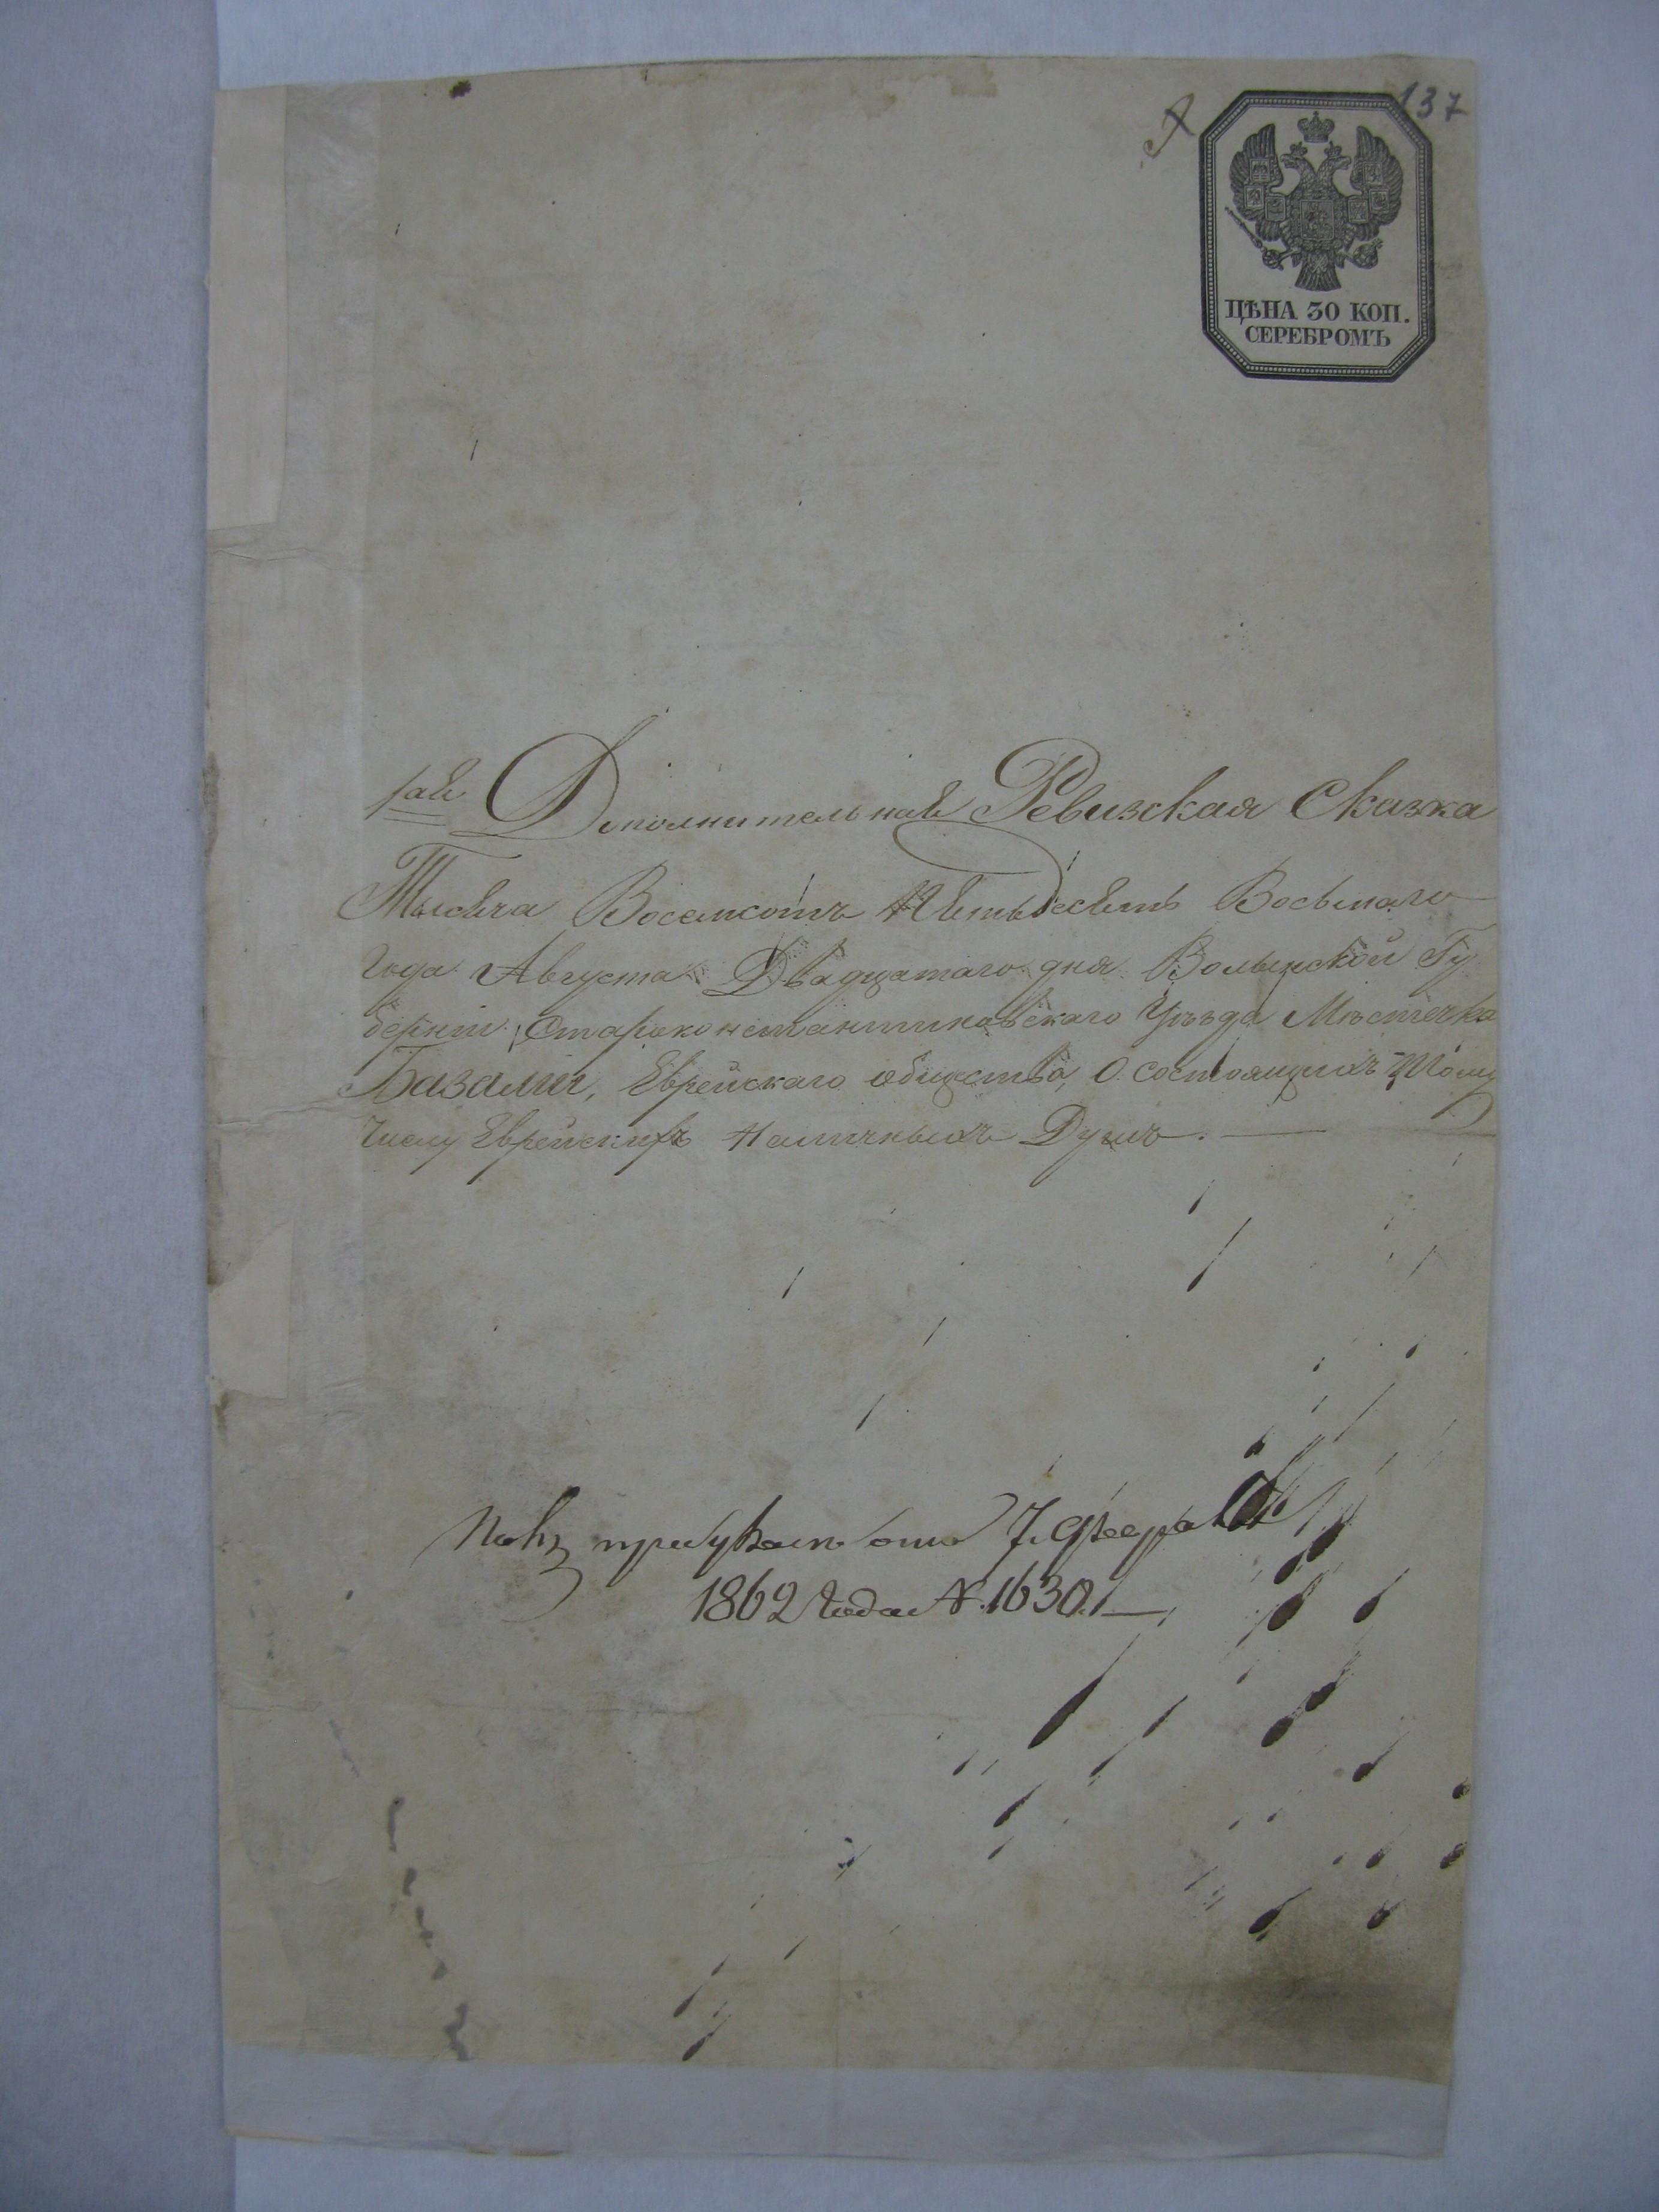 137
ЦѢНА 30 КОП.
СЕРЕБРОМЪ
1ая Дополнительная Ревизская Сказка
Тысяча Восемсотъ Пятьдесятъ Восьмаго
Года Августа Двадцатаго дня Волынской Гу
берніи Староконстантиновскаго Уѣзда Мѣстечка
Базаліи, Еврейскаго общества, О состоящихъ
числу Еврейскихъ Наличныхъ Душъ.
отъ 7. Февраля
1862 Года №. 1630.